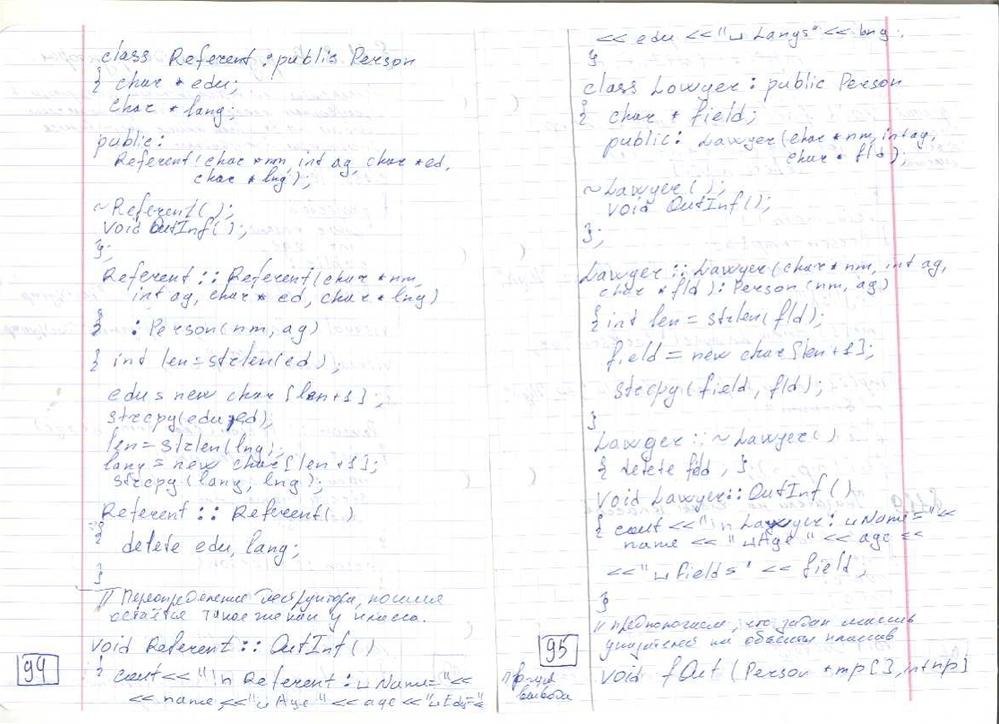 class Referent : public Person
{ char * edu;
char * lang;
public:
Referent(char *nm, int ag, char *ed,
char * lng);
~Referent();
void OutInf();
};
Referent :: Referent(char *nm,
int ag, char * ed, char * lng)
{ : Person(nm, ag)
{ int len = strlen(ed);
edu = new char [len+1];
strcpy(edu, ed);
len = strlen(lng);
lang = new char [len+1];
strcpy(lang, lng);
Referent :: Referent()
{
delete edu, lang;
}
// Переопределение деструктора, но имя
остаётся такое же как у класса.
void Referent :: OutInf()
{ cout << "\n Referent: ␣Name="<<
<< name << "␣Age" << age << "␣Edu="
94
<< edu << "␣Langs" << lng.
}
class Lowyer : public Person
{ char * field;
public: Lawyer(char *nm, int ag,
char * fld);
~Lawyer();
void OutInf();
};
Lawyer :: Lawyer(char *nm, int ag,
char * fld) : Person(nm, ag)
{ int len = strlen(fld);
field = new char [len+1];
strcpy(field, fld);
}
Lawyer :: ~Lawyer()
{ delete fdd, };
void Lawyer :: OutInf()
{ cout << "\n Lawyer: ␣Name=" <<
name << "␣Age" << age <<
<< "␣fields" << field;
}
// предполагаем, что задан массив
указателей на объекты классов
95
пр-ция
вывода
void fOut (Person *mp[], int np)